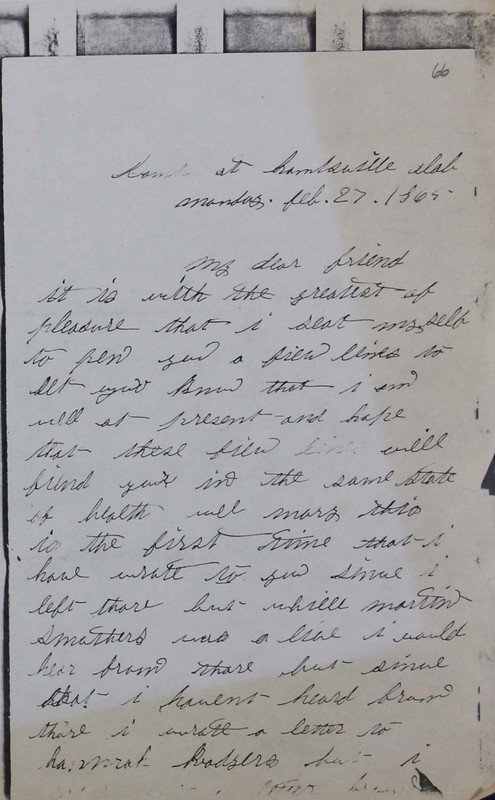 66
at huntsville alab
monday. feb. 27. 1865
my dear friend
it is with the greatest of
pleasure that i seat myself
to pen you a fiew lines to
let you know that i am
well at present and hope
that these fiew lines will
find you in the same state
of health well mary this
is the first time that i
have wrate to you since i
left thare but whille martin
smathers was a live i would
hear from thare but since
that i havent heard from
there i wrate a letter to
hannah Rodgers but i